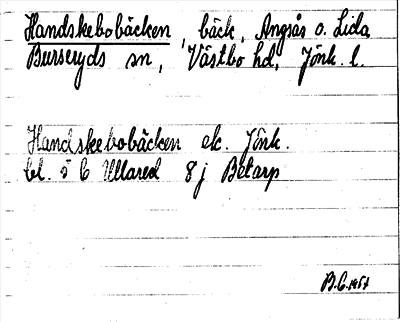 Handskebobäcken, bäck, Angsås o. Lida
Burseryds sn, Västbo hd, Jönk. l.
Handskebobäcken ek. Jönk.
bl. 5 6 Ullared 8 j Betarp
B.C. 1957